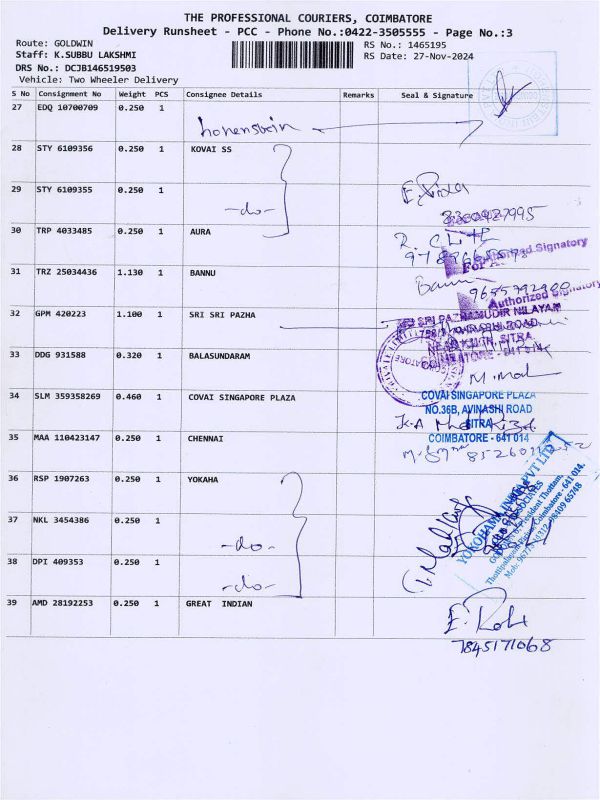 THE PROFESSIONAL COURIERS, COIMBATORE
Delivery Runsheet - PCC - Phone No.:0422-3505555 - Page No.:3
Route: GOLDWIN RS No.: 1465195
Staff: K.SUBBU LAKSHMI RS Date: 27-Nov-2024
DRS No.: DCJB146519503
Vehicle: Two Wheeler Delivery
S No Consignment No Weight PCS Consignee Details Remarks Seal & Signature
27 EDQ 10700709 0.250 1
hohenstein
28 STY 6109356 0.250 1 KOVAI SS
29 STY 6109355 0.250 1
-do-
30 TRP 4033485 0.250 1 AURA
Authorized Signatory
For A
31 TRZ 25034436 1.130 1 BANNU
9655792900
Authorized Signatory
32 GPM 420223 1.100 1 SRI SRI PAZHA
SRI PAZHAMUDIR NILAYAM
AVINASHI ROAD
SITRA
COIMBATORE - 641 014
33 DDG 931588 0.320 1 BALASUNDARAM
34 SLM 359358269 0.460 1 COVAI SINGAPORE PLAZA
COVAI SINGAPORE PLAZA
NO.36B, AVINASHI ROAD
SITRA
COIMBATORE - 641 014
35 MAA 110423147 0.250 1 CHENNAI
36 RSP 1907263 0.250 1 YOKAHA
37 NKL 3454386 0.250 1
-do-
38 DPI 409353 0.250 1
-do-
YOKOHAMA INDIA PVT LTD
ASSOCIATES
Coimbatore - 641 014.
39 AMD 28192253 0.250 1 GREAT INDIAN
7845171068